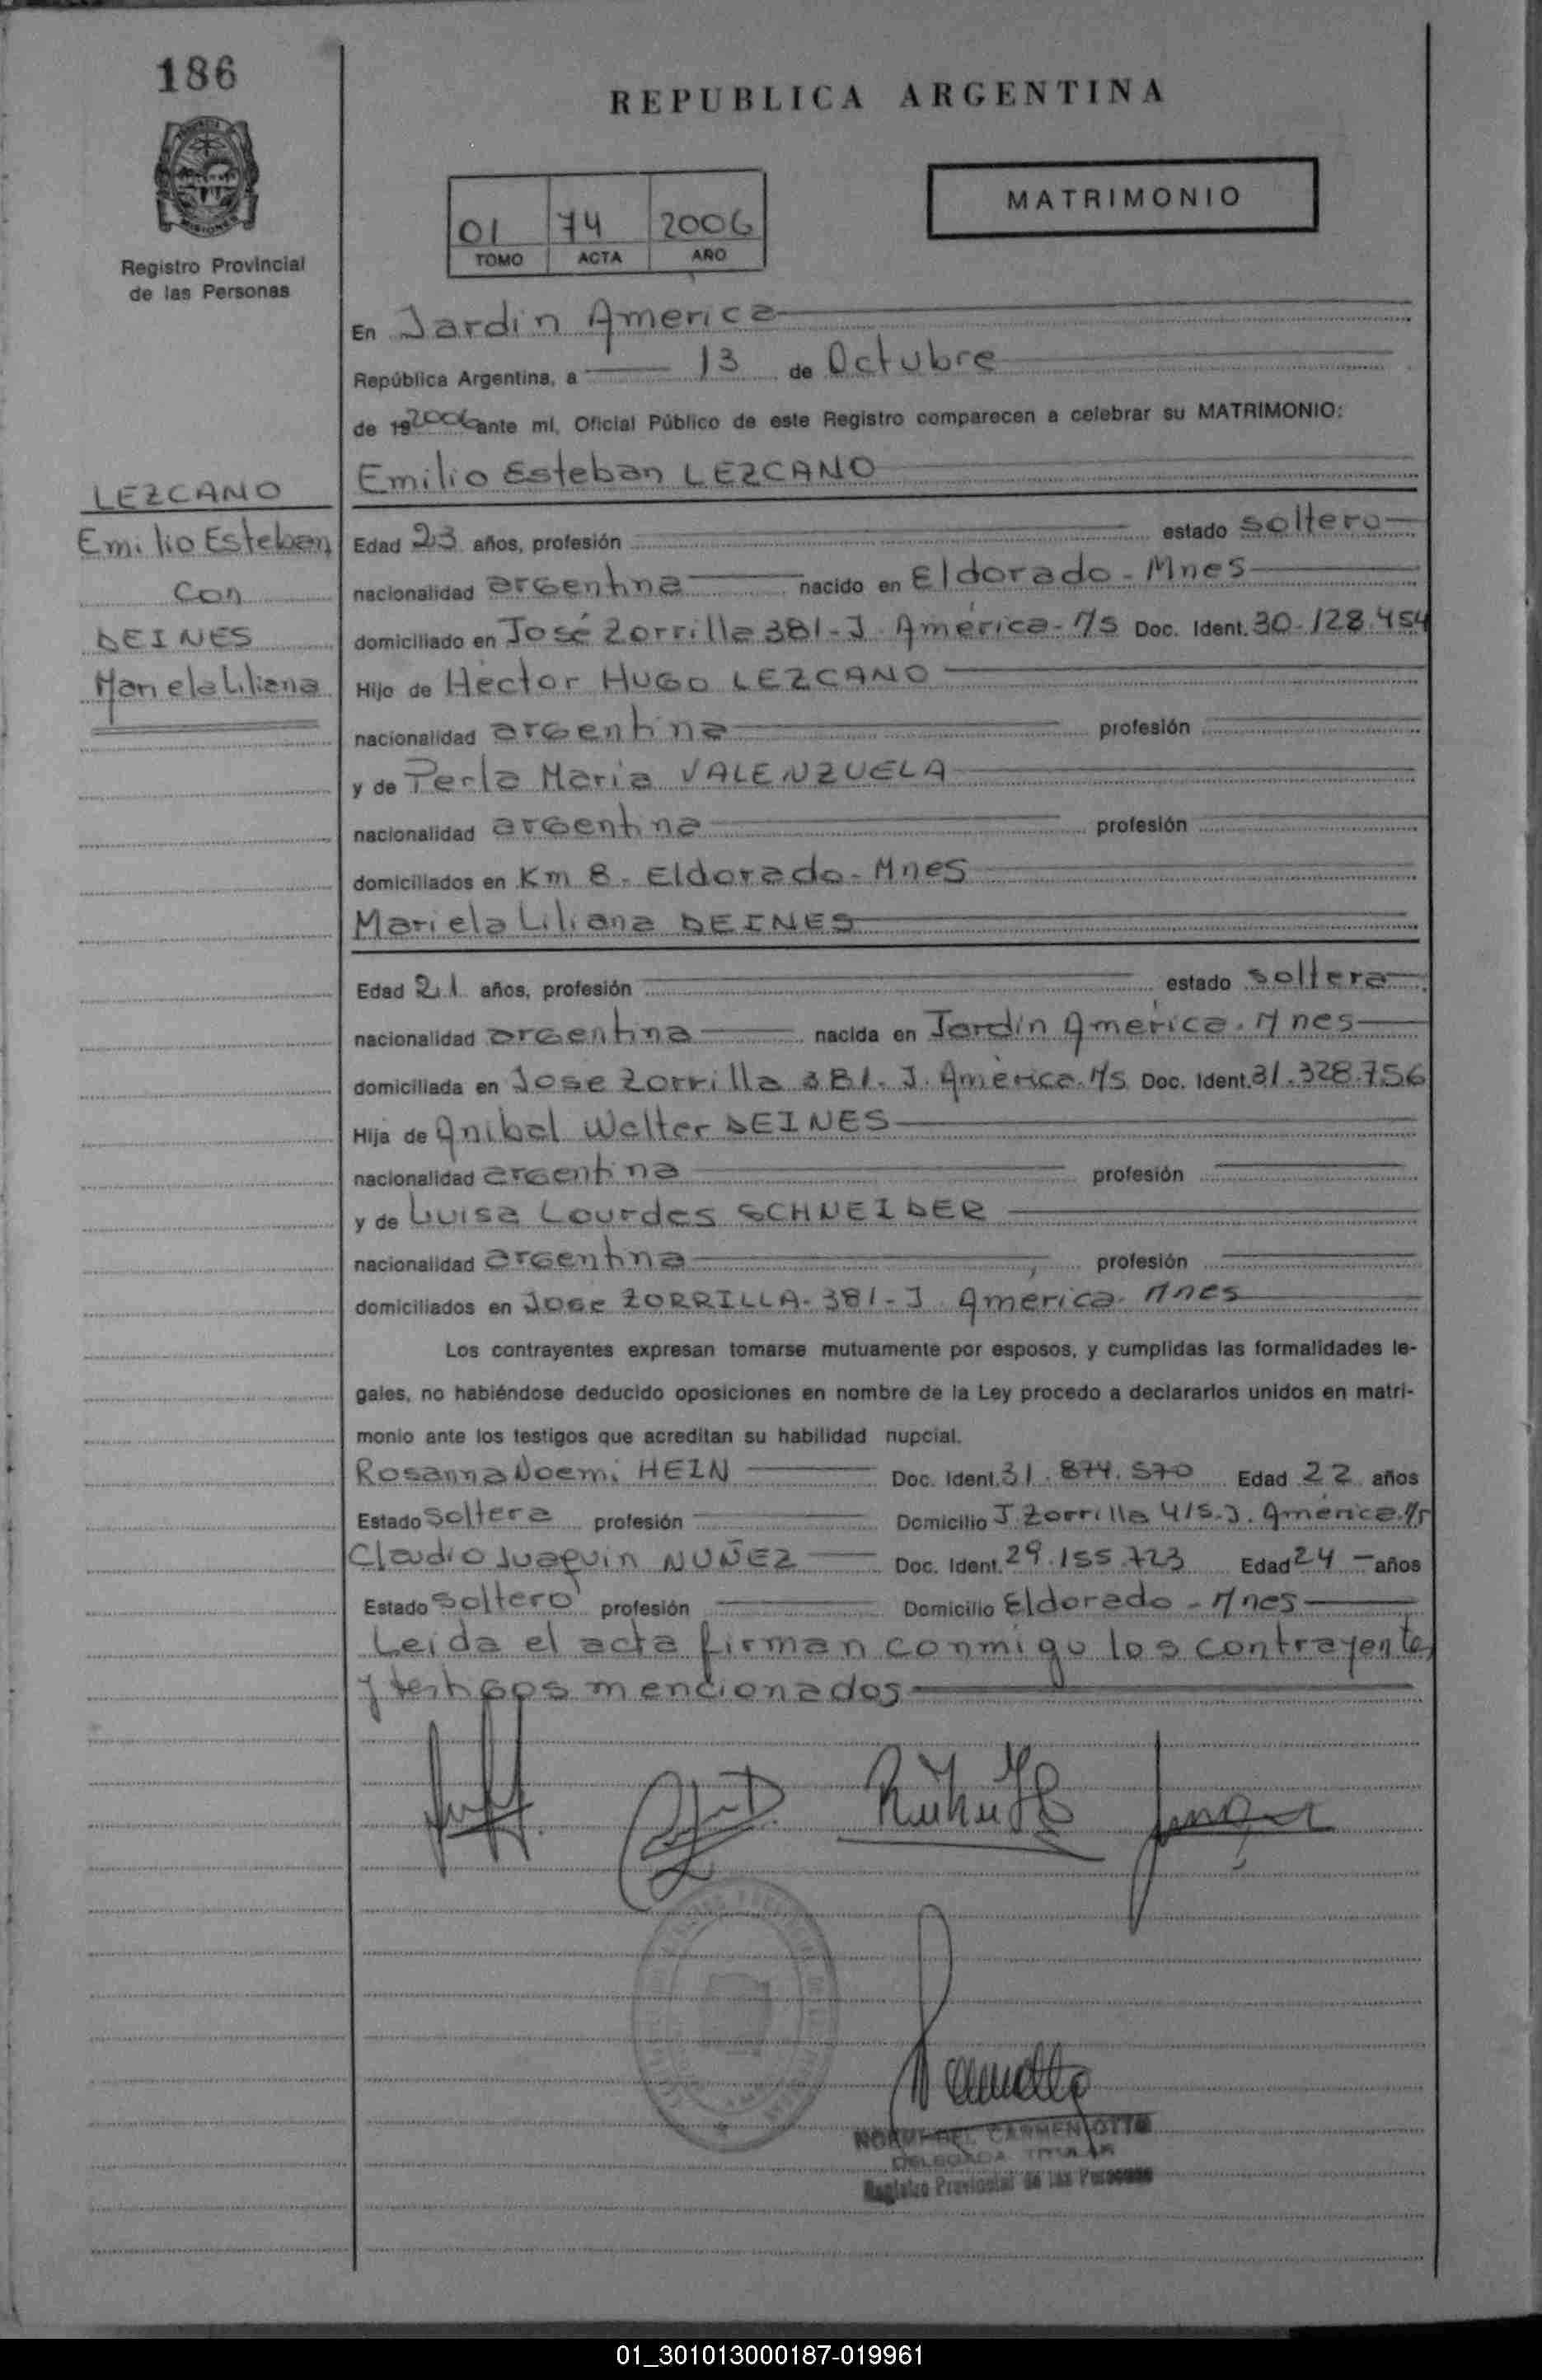 186
REPUBLICA ARGENTINA
MATRIMONIO
01 74 2006
TOMO ACTA AÑO
Registro Provincial
de las Personas
En Jardin America
República Argentina, a 13 de Octubre
de 192006 ante mí, Oficial Público de este Registro comparecen a celebrar su MATRIMONIO:
Emilio Esteban LEZCANO
LEZCANO
Emilio Esteban
con
DEINES
Mariela Liliana
Edad 23 años, profesión estado soltero
nacionalidad argentina nacido en Eldorado - Mnes
domiciliado en José Zorrilla 381 - J. América - M/s Doc. Ident. 30.128.454
Hijo de Héctor HUGO LEZCANO
nacionalidad argentina profesión
y de Perla Maria VALENZUELA
nacionalidad argentina profesión
domiciliados en Km 8 - Eldorado - Mnes
Mariela Liliana DEINES
Edad 21 años, profesión estado soltera
nacionalidad argentina nacida en Jardín América. Mnes
domiciliada en Jose Zorrilla 381 - J. América. M/s Doc. Ident. 31.328.756
Hija de Anibal Walter DEINES
nacionalidad argentina profesión
y de Luisa Lourdes SCHNEIDER
nacionalidad argentina profesión
domiciliados en Jose ZORRILLA - 381 - J. América - Mnes
Los contrayentes expresan tomarse mutuamente por esposos, y cumplidas las formalidades le-
gales, no habiéndose deducido oposiciones en nombre de la Ley procedo a declararlos unidos en matri-
monio ante los testigos que acreditan su habilidad nupcial.
Rosanna Noemi HEIN Doc. Ident. 31.874.570 Edad 22 años
Estado soltera profesión Domicilio J. Zorrilla 415 - J. América
Claudio Juaquin NUÑEZ Doc. Ident. 29.155.723 Edad 24 años
Estado soltero profesión Domicilio Eldorado - Mnes
Leida el acta firman conmigo los contrayentes
y testigos mencionados
DEL CARMEN OTTO
DELEGADA TITULAR
Registro Provincial de las Personas
01_301013000187-019961